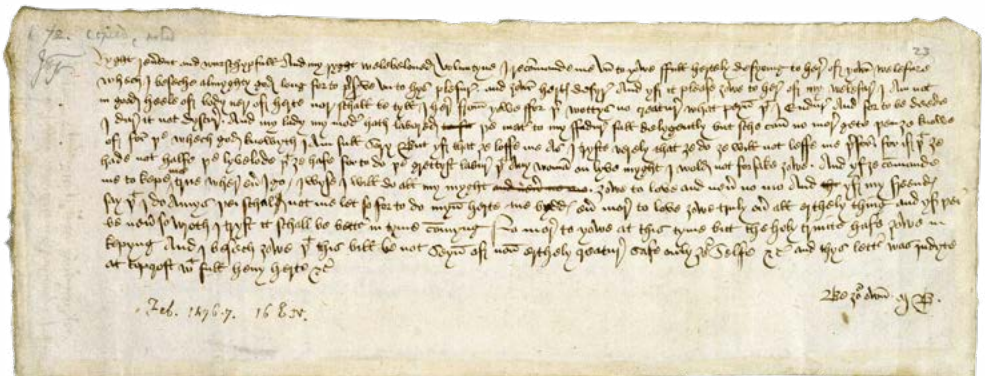 72. copied, noted
23
Ryght reuerent and wurschypfull and my ryght welebeloued Voluntyne I recomaunde me vn to yowe full hertely desyring to here of yowr welefare
whech I beseche almyghty god long for to preserve vn to hys plesure and yowr hertys desyre And yf it please yowe to here of my welefare I am not
in good heele of body ner of herte nor schall be tyll I here from yowe For þer wottys no creature what peyn þt I endure And for to be deede
I dure it not dyscure And my lady my moder hath labored þe mater to my fadure full delygently but sche can no more gete þen ȝe knowe
of for þe whech god knowyth I am full sory But yf that ȝe loffe me as I tryste verely that ȝe do ȝe will not leffe me þerfor for if þt ȝe
hade not halfe þe lyvelode þt ȝe hafe for to do þe grettyst labure þt any woman on lyve myght I wold not forsake ȝowe And yf ȝe comande
me to kepe me true wher euer I go I wyse I will do all my myght ȝowe to love and neuer no mo And yf my freendys
say þt I do amys þei schal not me let so for to do myn herte me byddys euer more to love ȝowe truly ouer all erthely thing and yf þei
be neuer so wroth I tryst it schall be bettur in tyme comyng No more to yowe at this tyme but the holy trinite hafe ȝowe in
kepyng And I besech ȝowe þt this bill be not seyn of non erthely creature safe only ȝour selfe &c and thys lettur was jndyte
at topcroft wt full heuy herte &c
Be ȝour own M B.
Feb. 1476-7. 16 E. IV.